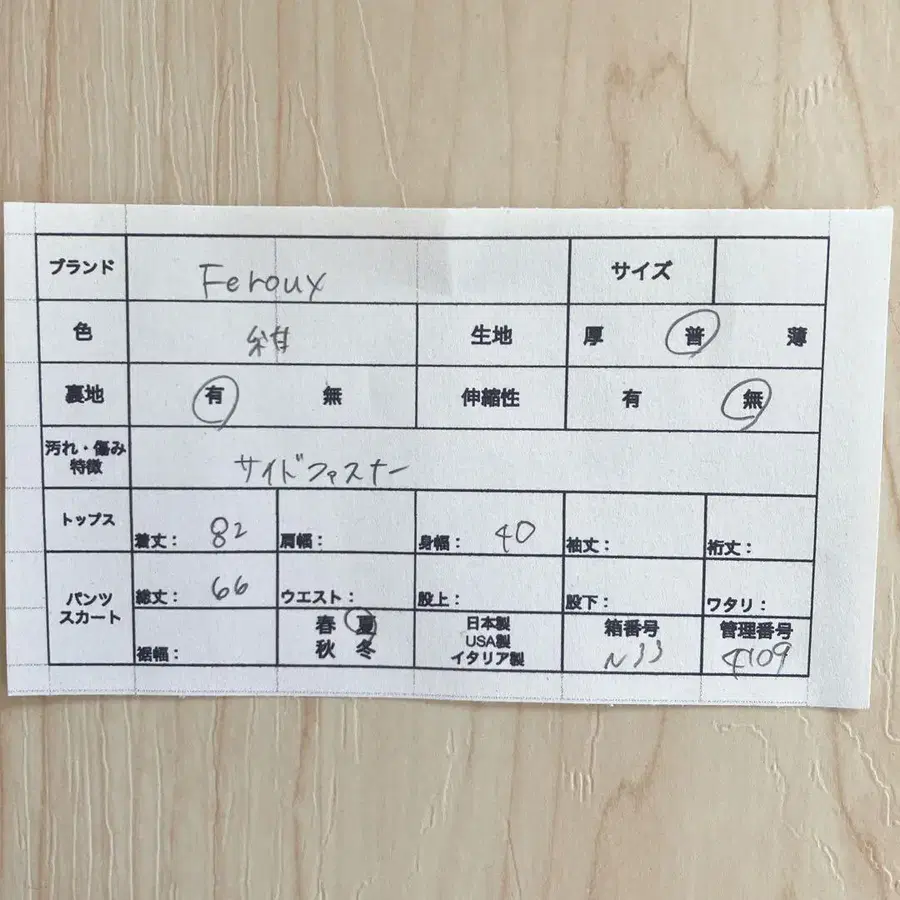 ブランド Feroux サイズ
色 紺 生地 厚 普 薄
裏地 有 無 伸縮性 有 無
汚れ・傷み
特徴 サイドファスナー
トップス 着丈： 82 肩幅： 身幅： 40 袖丈： 裄丈：
パンツ
スカート
総丈： 66 ウエスト： 股上： 股下： ワタリ：
裾幅：
春 夏
秋 冬
日本製
USA製
イタリア製
箱番号
N33
管理番号
4109